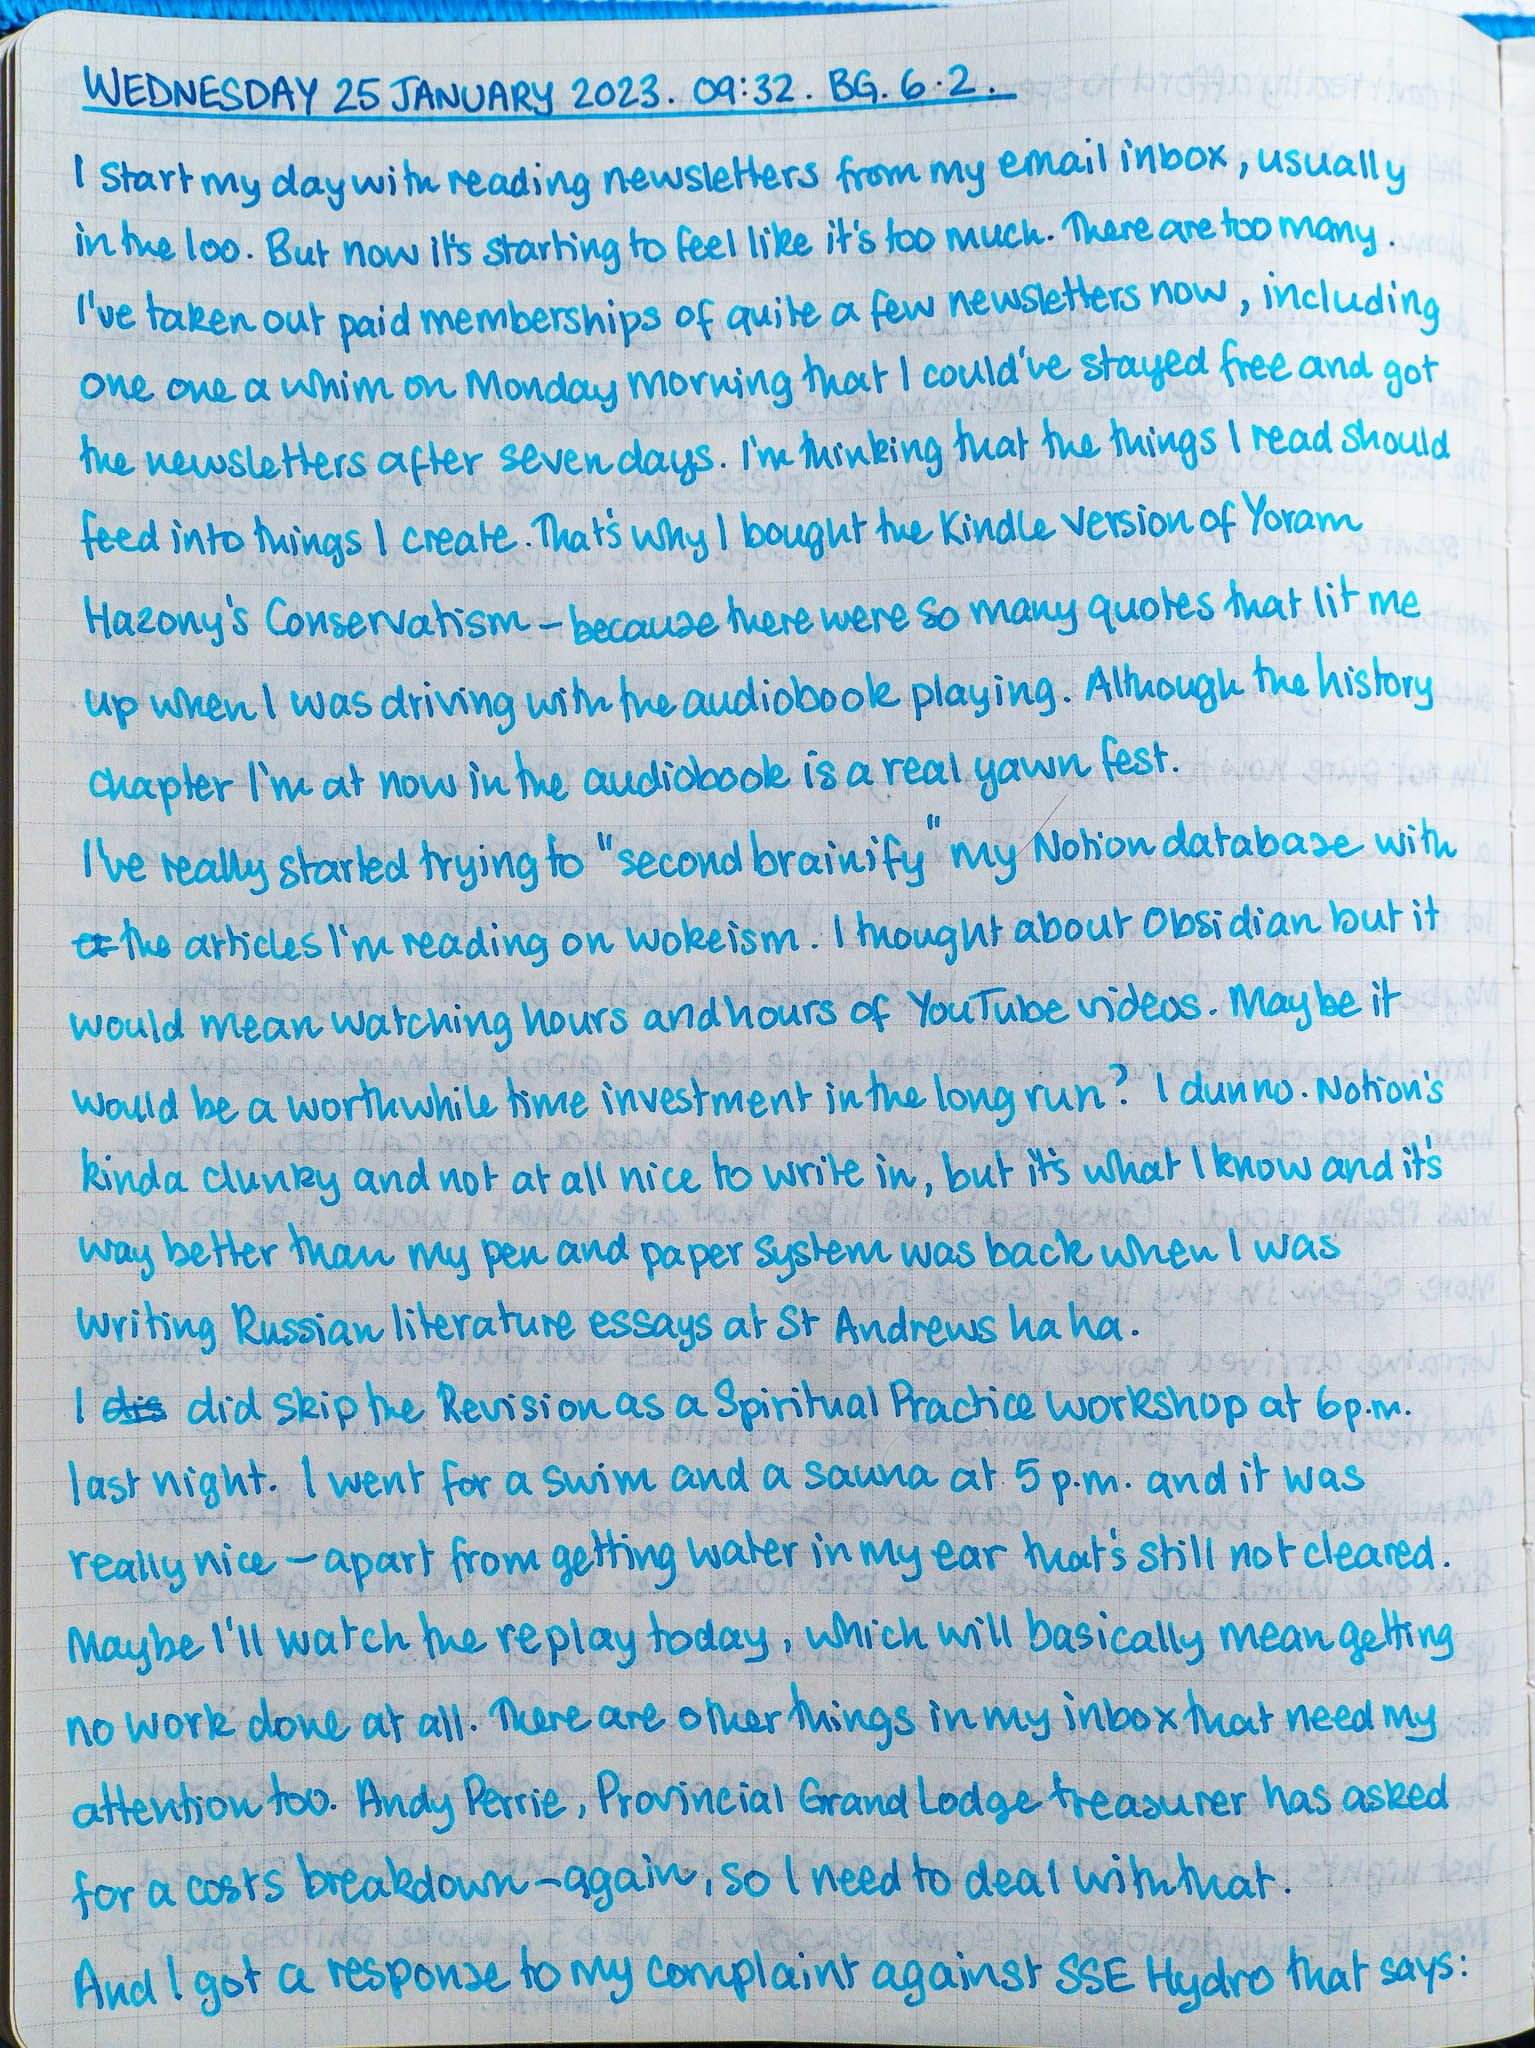 WEDNESDAY 25 JANUARY 2023. 09:32. BG. 6.2.
I start my day with reading newsletters from my email inbox, usually
in the loo. But now it's starting to feel like it's too much. There are too many.
I've taken out paid memberships of quite a few newsletters now, including
one one a whim on Monday morning that I could've stayed free and got
the newsletters after seven days. I'm thinking that the things I read should
feed into things I create. That's why I bought the Kindle version of Yoram
Hazony's Conservatism – because there were so many quotes that lit me
up when I was driving with the audiobook playing. Although the history
chapter I'm at now in the audiobook is a real yawn fest.
I've really started trying to "second brainify" my Notion database with
the articles I'm reading on wokeism. I thought about Obsidian but it
would mean watching hours and hours of YouTube videos. Maybe it
would be a worthwhile time investment in the long run? I dunno. Notion's
kinda clunky and not at all nice to write in, but it's what I know and it's
way better than my pen and paper system was back when I was
writing Russian literature essays at St Andrews ha ha.
I dis did skip the Revision as a Spiritual Practice workshop at 6p.m.
last night. I went for a swim and a sauna at 5 p.m. and it was
really nice – apart from getting water in my ear that's still not cleared.
Maybe I'll watch the replay today, which will basically mean getting
no work done at all. There are other things in my inbox that need my
attention too. Andy Perrie, Provincial Grand Lodge treasurer has asked
for a costs breakdown – again, so I need to deal with that.
And I got a response to my complaint against SSE Hydro that says: